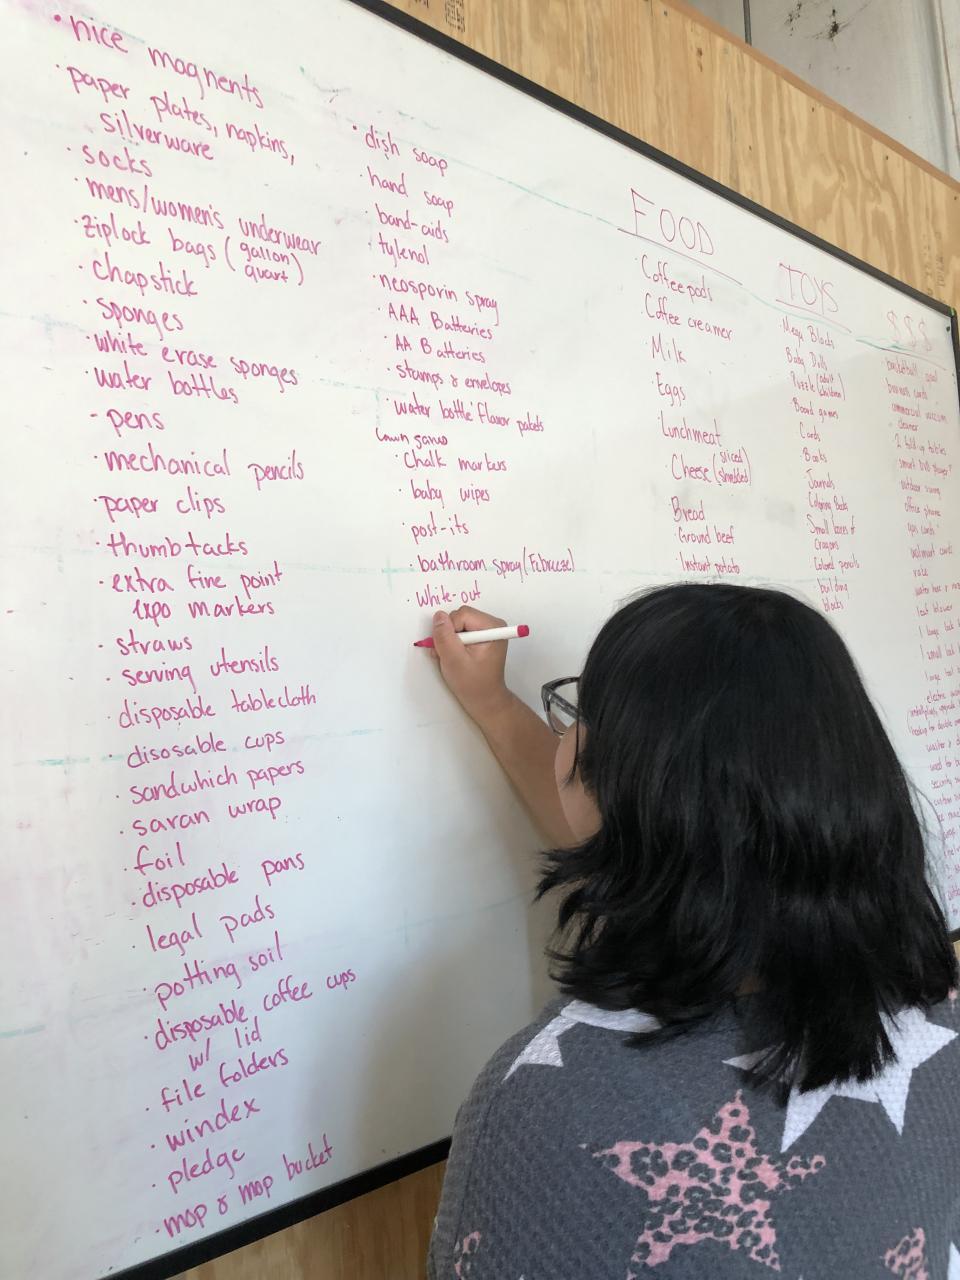 • nice magnents
• paper plates, napkins,
silverware
• socks
• mens/women's underwear
• ziplock bags (gallon
quart)
• chapstick
• sponges
• white erase sponges
• water bottles
- pens
• mechanical pencils
• paper clips
• thumbtacks
• extra fine point
expo markers
• straws
• serving utensils
• disposable tablecloth
• disosable cups
• sandwhich papers
• saran wrap
• foil
• disposable pans
• legal pads
• potting soil
• disposable coffee cups
w/ lid
• file folders
• windex
• pledge
• mop & mop bucket
• dish soap
• hand soap
• band-aids
• tylenol
• neosporin spray
• AAA Batteries
• AA Batteries
• stamps & envelopes
• water bottle flavor pakets
Lawn games
• Chalk markers
• baby wipes
• post-its
• bathroom spray (Febreeze)
• white-out
FOOD
• Coffee pods
• Coffee creamer
• Milk
• Eggs
• Lunchmeat
• Cheese (sliced
shredded)
• Bread
• Ground beef
• Instant potato
TOYS
• Mega Blocks
Baby Dolls
Puzzle (adult
children)
Board games
Cards
• Books
Journals
Coloring Books
Small boxes of
Crayons
Colored pencils
building
blocks
$$$
basketball goal
business cards
commercial vaccum
cleaner
2 fold-up tables
smart DVD player
outdoor swing
office phone
gas cards
walmart cards
rake
leaf blower